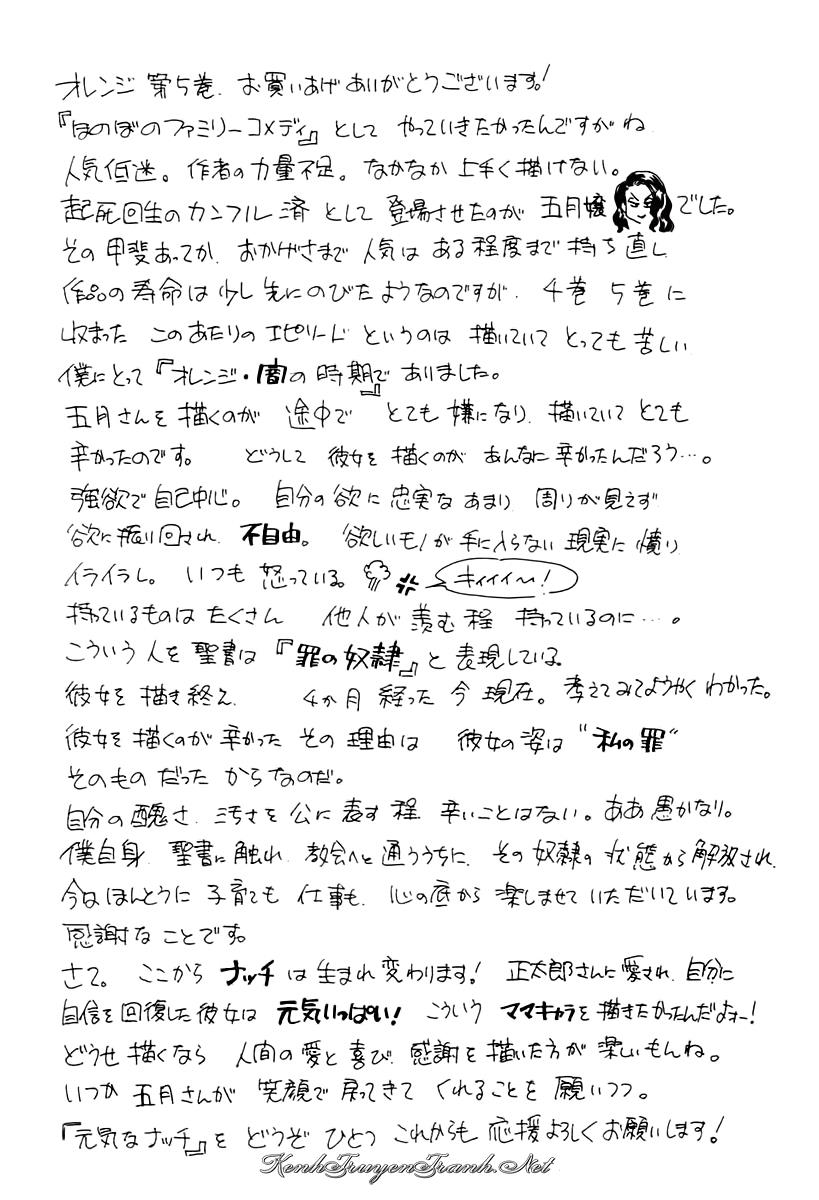 オレンジ 第5巻、お買いあげありがとうございます!
『ほのぼのファミリーコメディ』として やっていきたかったんですがね
人気低迷。作者の力量不足。なかなか上手く描けない。
起死回生のカンフル済として登場させたのが 五月嬢でした。
その甲斐あってか、おかげさまで人気はある程度まで持ち直し
作品の寿命は少し先にのびたようなのですが、4巻 5巻に
収まった このあたりのエピソードというのは 描いていて とっても苦しい
僕にとって『オレンジ・闇の時期』でありました。
五月さんを描くのが 途中で とても嫌になり、描いていて とても
辛かったのです。 どうして 彼女を描くのが あんなに辛かったんだろう…。
強欲で自己中心。自分の欲に忠実なあまり 周りが見えず
欲に振り回され、不自由。欲しいモノが手に入らない現実に憤り
イライラし。いつも怒っている。 キィィィ~!
持っているものは たくさん 他人が羨む程 持っているのに…。
こういう人を聖書は『罪の奴隷』と表現している
彼女を描き終え、 4か月経った今現在。考えてみてようやくわかった。
彼女を描くのが辛かった その理由は 彼女の姿は“私の罪”
そのものだったからなのだ。
自分の醜さ、汚さを公に表す程 辛いことはない。ああ愚かなり。
僕自身、聖書に触れ、教会へと通ううちに、その奴隷の状態から解放され、
今はほんとうに子育ても 仕事も、心の底から楽しませていただいています。
感謝なことです。
さて。ここからナッチは生まれ変わります! 正太郎さんに愛され、自分に
自信を回復した彼女は 元気いっぱい! こういう ママキャラを描きたかったんだよォー!
どうせ描くなら 人間の愛と喜び、感謝を描いた方が楽しいもんね。
いつか五月さんが 笑顔で戻ってきてくれることを願いつつ。
『元気なナッチ』を どうぞ ひとつ これからも応援よろしくお願いします!
KenhTruyenTranh.Net